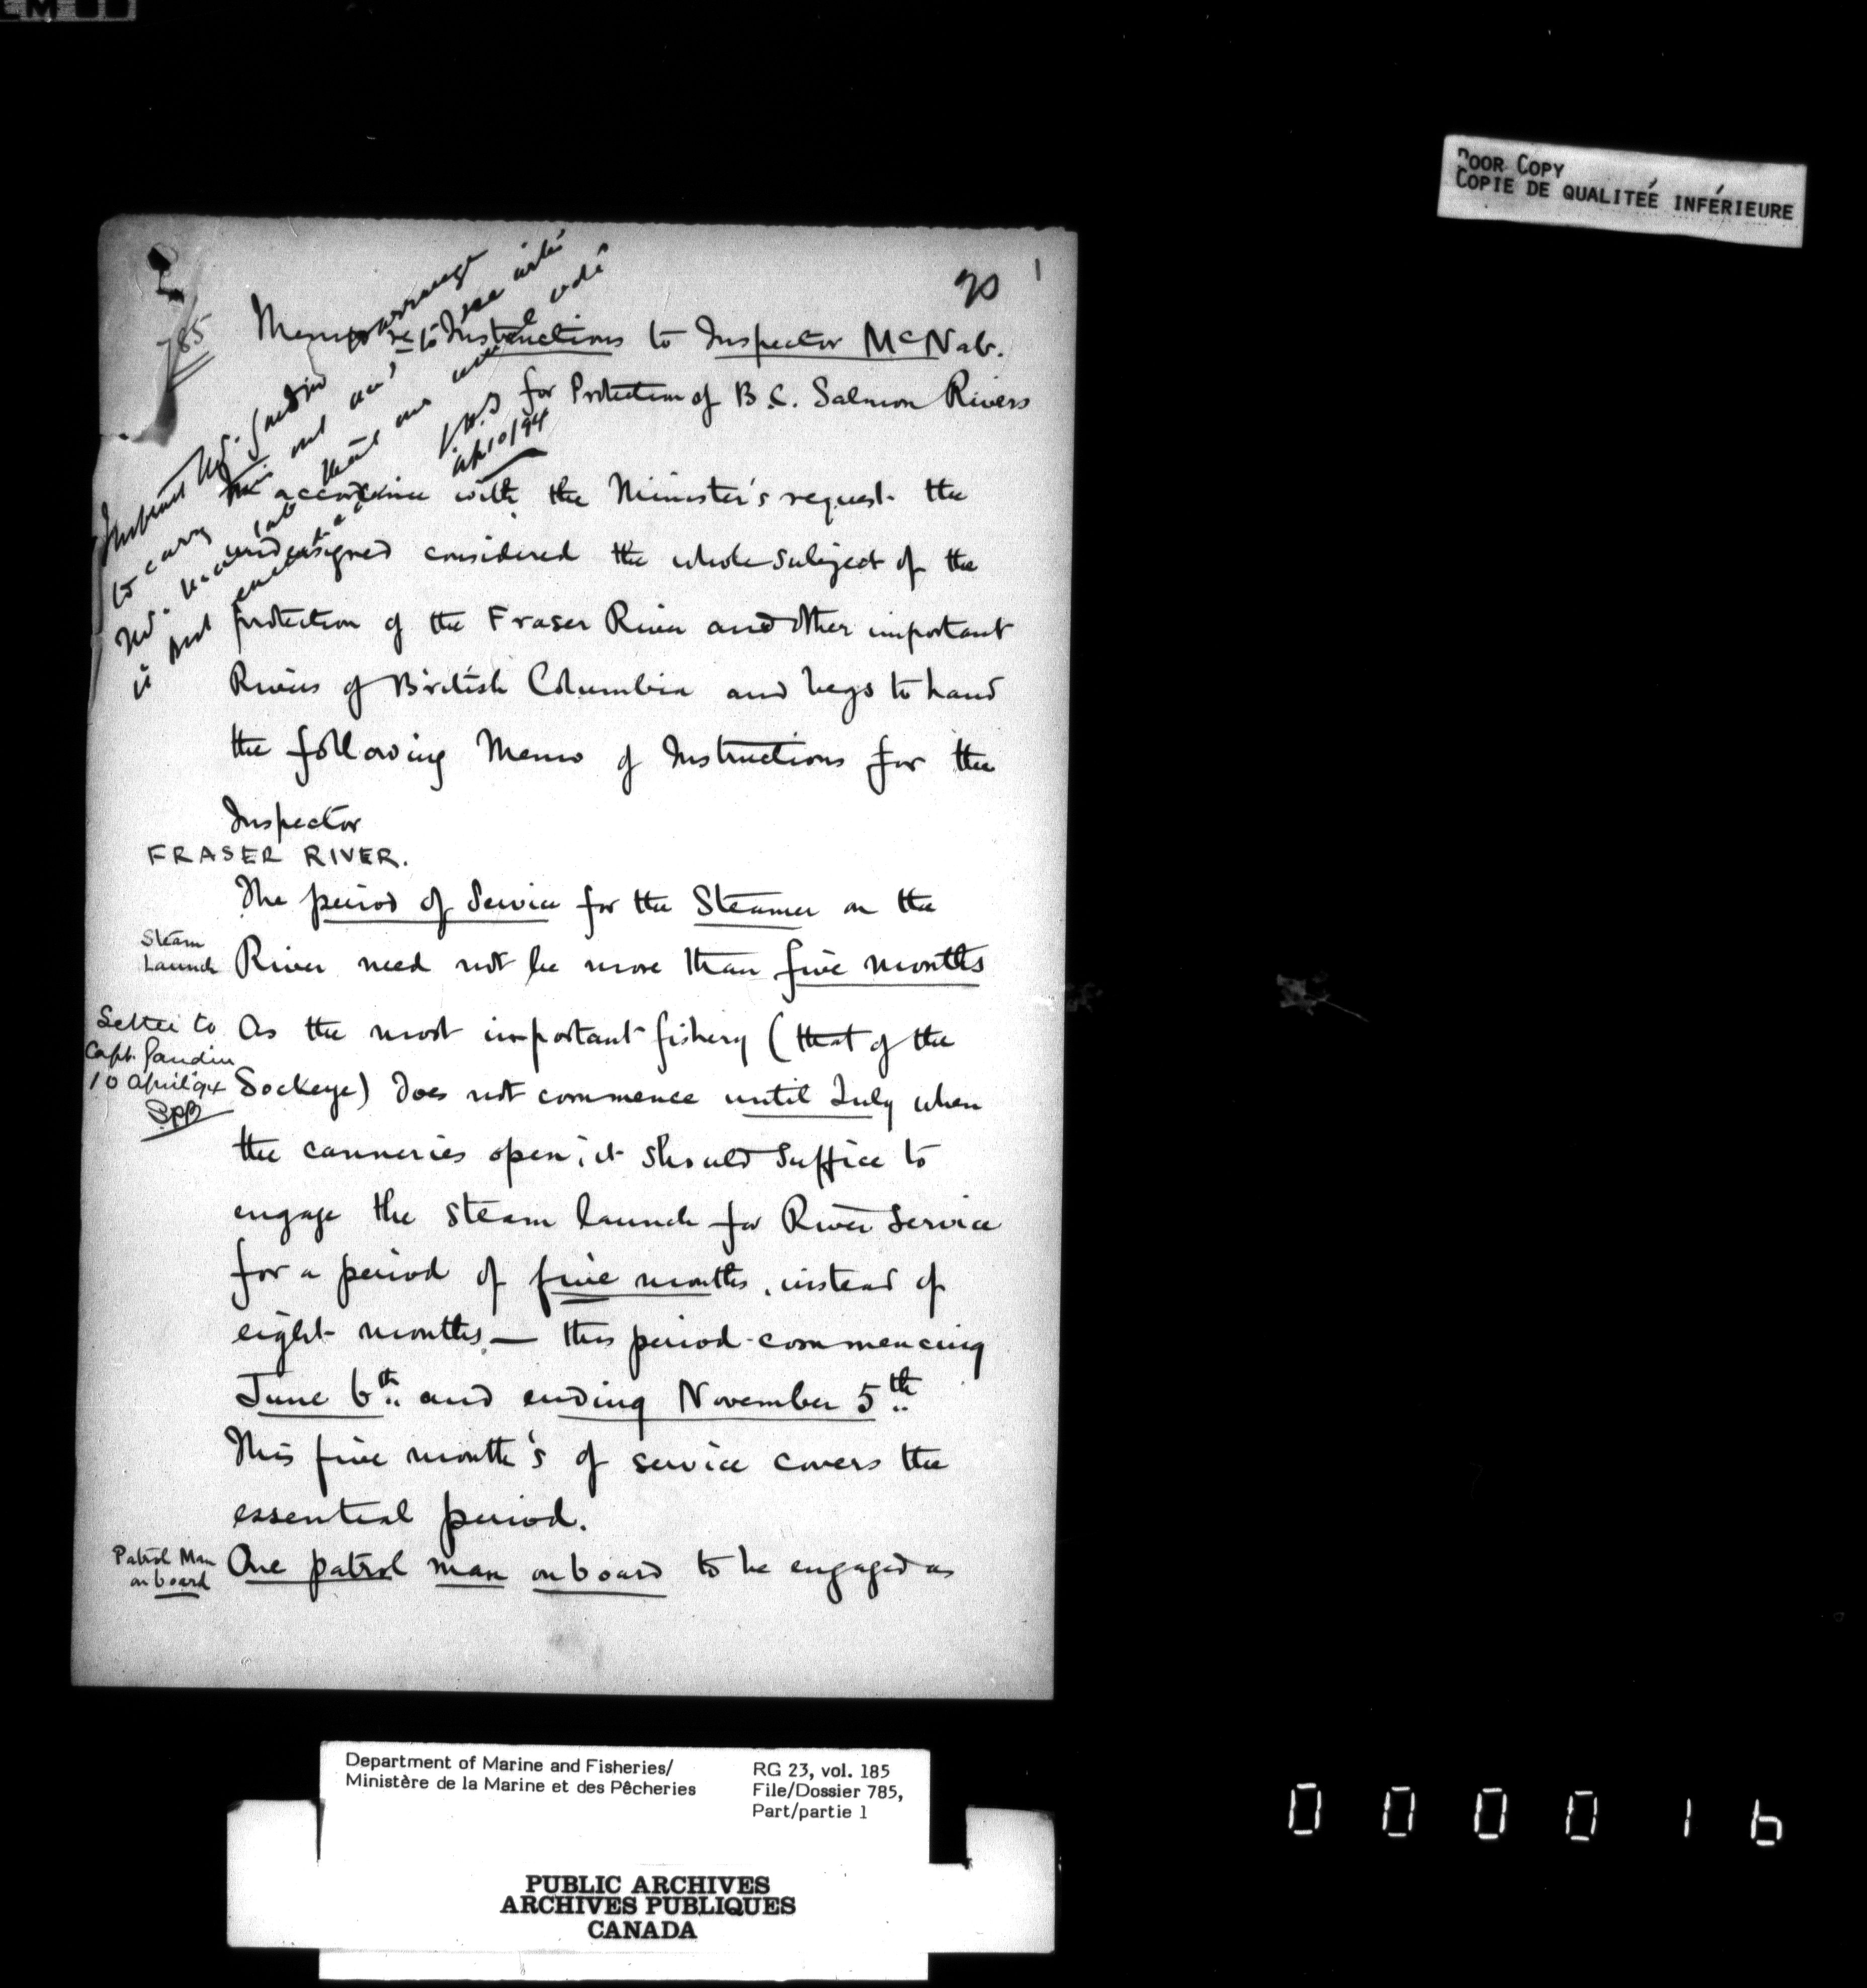 POOR COPY
COPIE DE QUALITEÉ INFÉRIEURE
785
Memo re Instructions to Inspector McNab.
for Protection of B.C. Salmon Rivers
Ap 10/94
In accordance with the Minister's request the
undersigned considered the whole subject of the
protection of the Fraser River and other important
Rivers of British Columbia and begs to hand
the following Memo of Instructions for the
Inspector
FRASER RIVER.
The period of Service for the Steamer on the
Steam
Launch
River need not be more than five months
Letter to
Capt. Gaudin
10 April '94
As the most important fishery (that of the
Sockeye) does not commence until July when
the canneries open; it should suffice to
engage the steam launch for River Service
for a period of five months, instead of
eight months — this period commencing
June 6th and ending November 5th
This five month's of service covers the
essential period.
Patrol Man
on board
One patrol man on board to be engaged as
Department of Marine and Fisheries/
Ministère de la Marine et des Pêcheries
RG 23, vol. 185
File/Dossier 785,
Part/partie 1
PUBLIC ARCHIVES
ARCHIVES PUBLIQUES
CANADA
000016